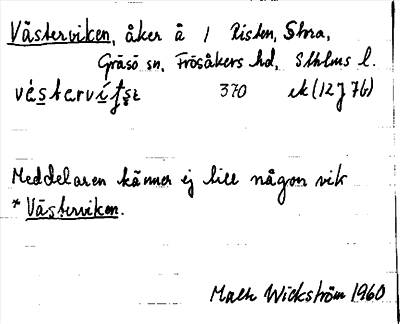 Västerviken, åker å 1 Risten, Stora,
Gräsö sn, Frösåkers hd, Sthlms l.
370 ek (12J7b)
Meddelaren känner ej till någon vik
* Västerviken.
Wickström 1960